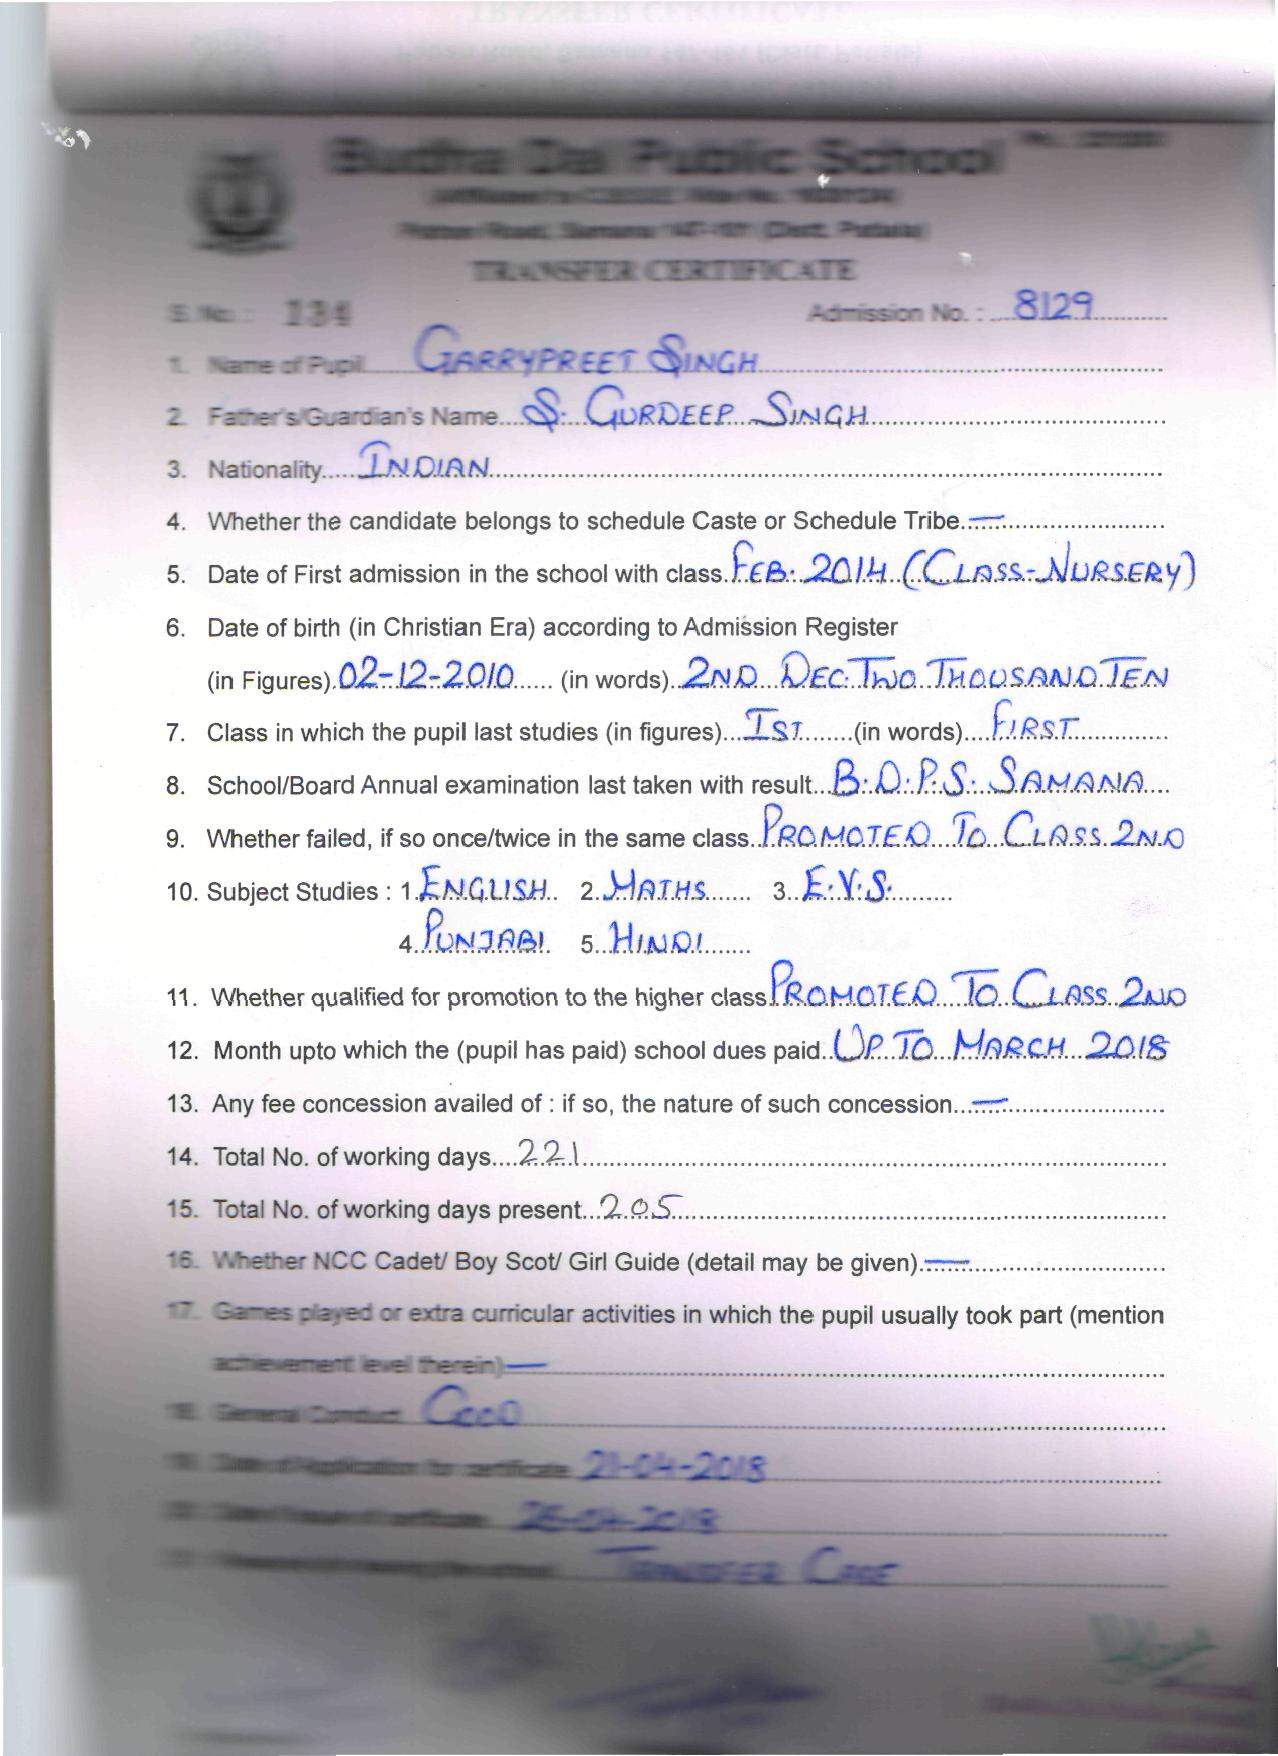 Budha Dal Public School
Patran Road, Samana 147-101 (Distt. Patiala)
TRANSFER CERTIFICATE
S. No. : 134 Admission No. : 8129
1. Name of Pupil GARRYPREET SINGH
2. Father's/Guardian's Name S. GURDEEP SINGH
3. Nationality INDIAN
4. Whether the candidate belongs to schedule Caste or Schedule Tribe. —
5. Date of First admission in the school with class. FEB. 2014 (CLASS-NURSERY)
6. Date of birth (in Christian Era) according to Admission Register
(in Figures). 02-12-2010 (in words). 2ND DEC. TWO THOUSAND TEN
7. Class in which the pupil last studies (in figures) IST (in words) FIRST
8. School/Board Annual examination last taken with result B.D.P.S. SAMANA
9. Whether failed, if so once/twice in the same class. PROMOTED TO CLASS 2ND
10. Subject Studies : 1. ENGLISH 2. MATHS 3. E.V.S.
4. PUNJABI 5. HINDI
11. Whether qualified for promotion to the higher class PROMOTED TO CLASS 2ND
12. Month upto which the (pupil has paid) school dues paid. UP TO MARCH 2018
13. Any fee concession availed of : if so, the nature of such concession. —
14. Total No. of working days 221
15. Total No. of working days present 205
16. Whether NCC Cadet/ Boy Scot/ Girl Guide (detail may be given). —
17. Games played or extra curricular activities in which the pupil usually took part (mention
achievement level therein) —
18. General Conduct GOOD
19. Date of Application for certificate 21-04-2018
-04-2018
TRANSFER CASE